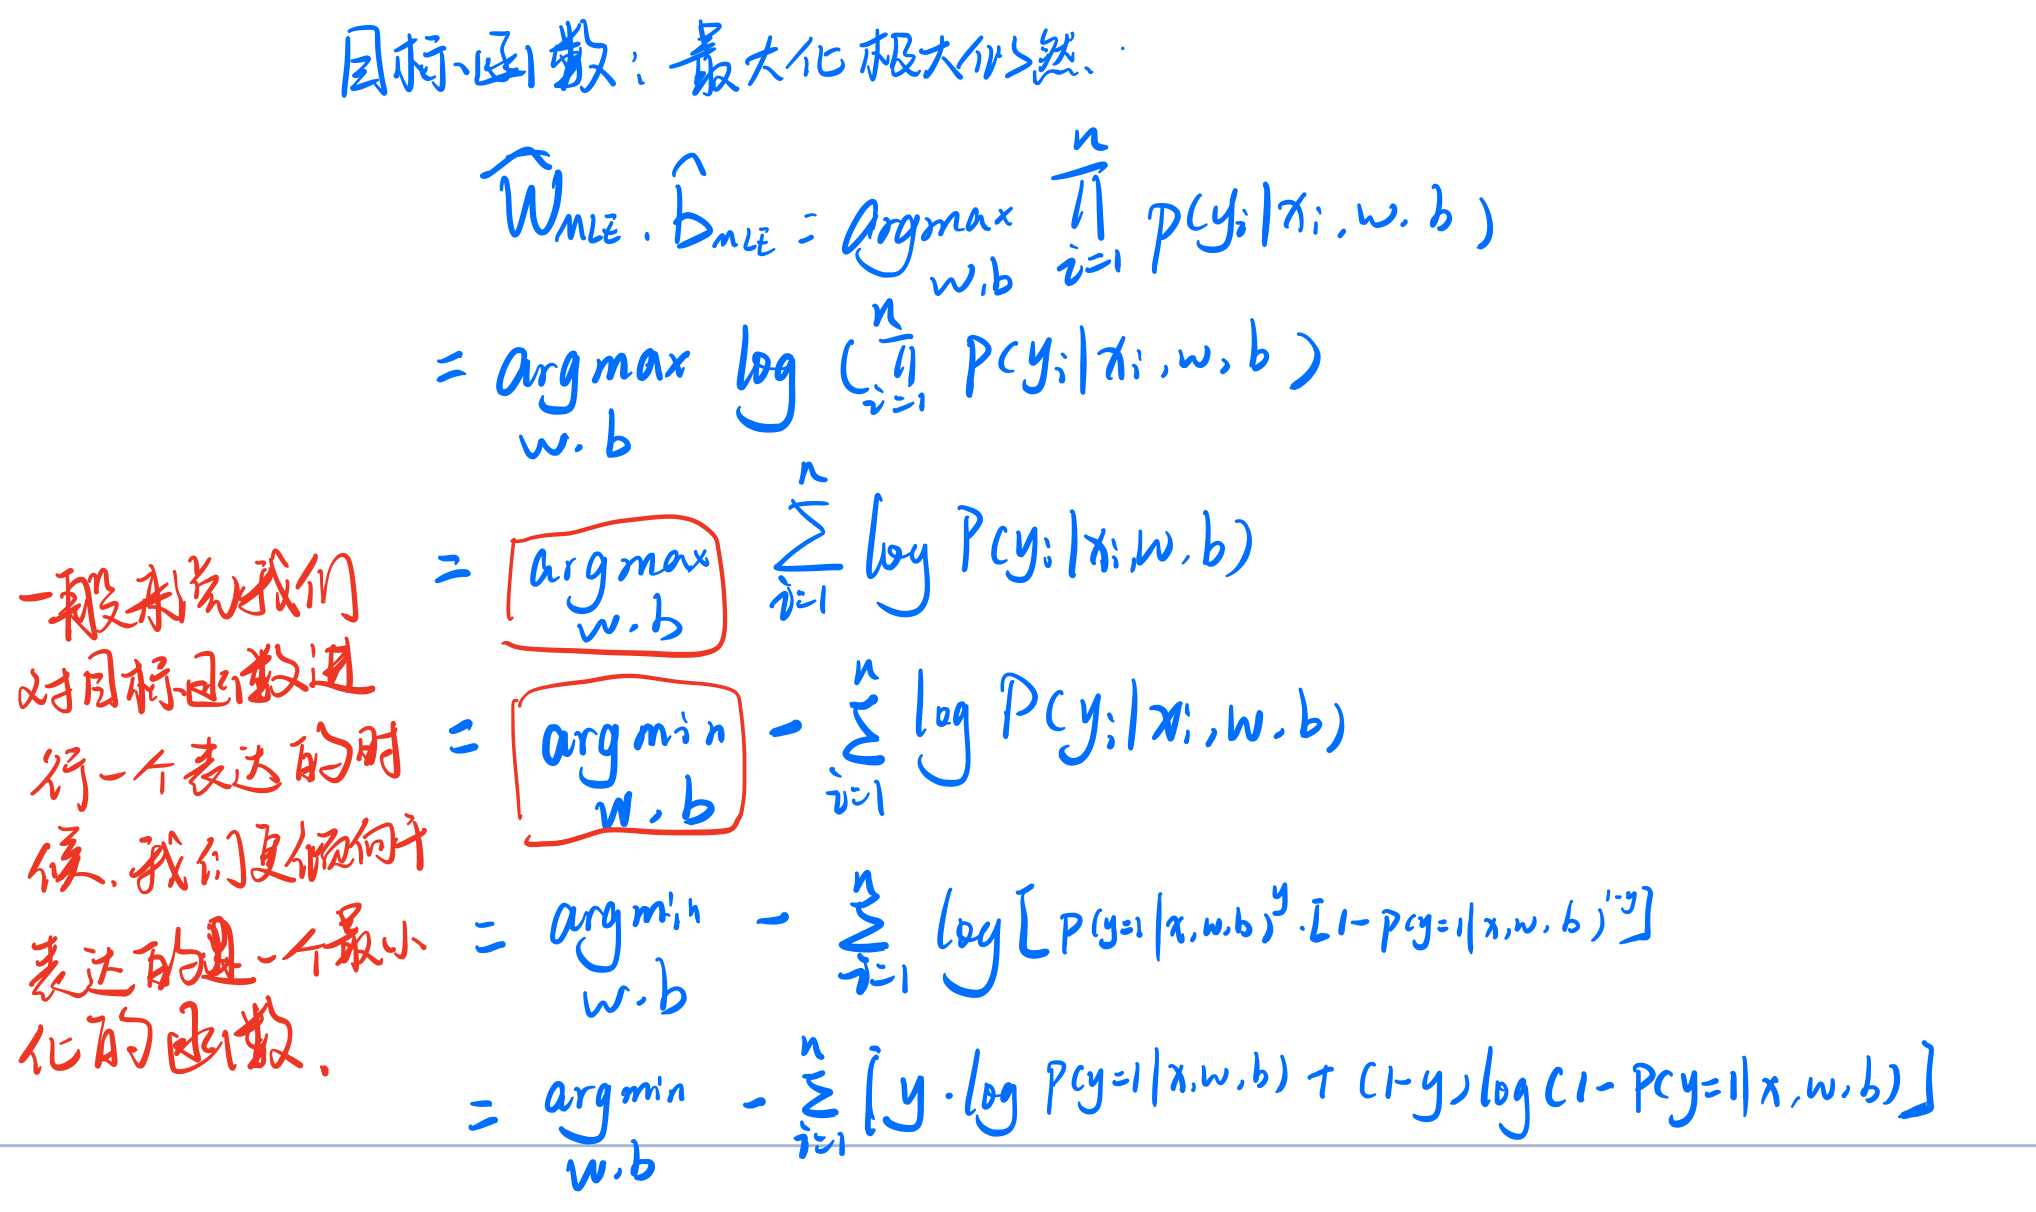 目标函数：最大化极大似然.
ŵ_MLE, b̂_MLE = argmax_{w,b} ∏_{i=1}^{n} p(y_i|x_i, w, b)
= argmax_{w,b} log (∏_{i=1}^{n} P(y_i|x_i, w, b)
= argmax_{w,b} ∑_{i=1}^{n} log P(y_i|x_i, w, b)
= argmin_{w,b} - ∑_{i=1}^{n} log P(y_i|x_i, w, b)
= argmin_{w,b} - ∑_{i=1}^{n} log [P(y=1|x,w,b)^y · [1-P(y=1|x,w,b)^{1-y}]
= argmin_{w,b} - ∑_{i=1}^{n} [y·log P(y=1|x,w,b) + (1-y) log(1-P(y=1|x,w,b)]
一般来说我们
对目标函数进
行一个表达的时
候，我们更倾向于
表达的是一个最小
化的函数.